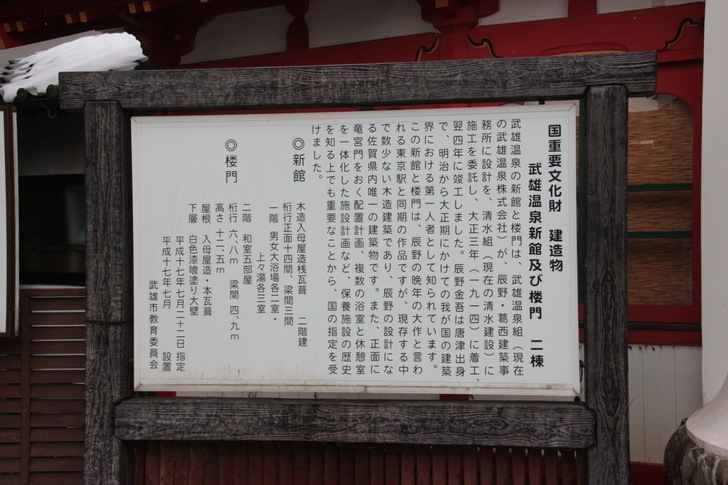 国重要文化財　建造物
武雄温泉新館及び楼門　二棟
武雄温泉の新館と楼門は、武雄温泉組（現在
の武雄温泉株式会社）が、辰野・葛西建築事
務所に設計を、清水組（現在の清水建設）に
施工を委託し、大正三年（一九一四）に着工、
翌四年に竣工しました。辰野金吾は唐津出身
で、明治から大正期にかけての我が国の建築
界における第一人者として知られています。
この新館と楼門は、辰野の晩年の大作と言わ
れる東京駅と同期の作品ですが、現存する中
で数少ない木造建築であり、辰野の設計にな
る佐賀県内唯一の建築物です。また、正面に
竜宮門をおく配置計画、複数の浴室と休憩室
を一体化した施設計画など、保養施設の歴史
を知る上でも重要なことから、国の指定を受
けました。
◎新館　木造入母屋造桟瓦葺　二階建
桁行正面十四間、梁間三間
一階　男女大浴場各二室・
上々湯各三室
二階　和室五部屋
◎楼門　桁行　六．八ｍ　梁間　四．九ｍ
高さ　十二．五ｍ
屋根　入母屋造・本瓦葺
下層　白色漆喰塗り大壁
平成十七年七月二十二日　指定
平成十七年七月　設置
武雄市教育委員会